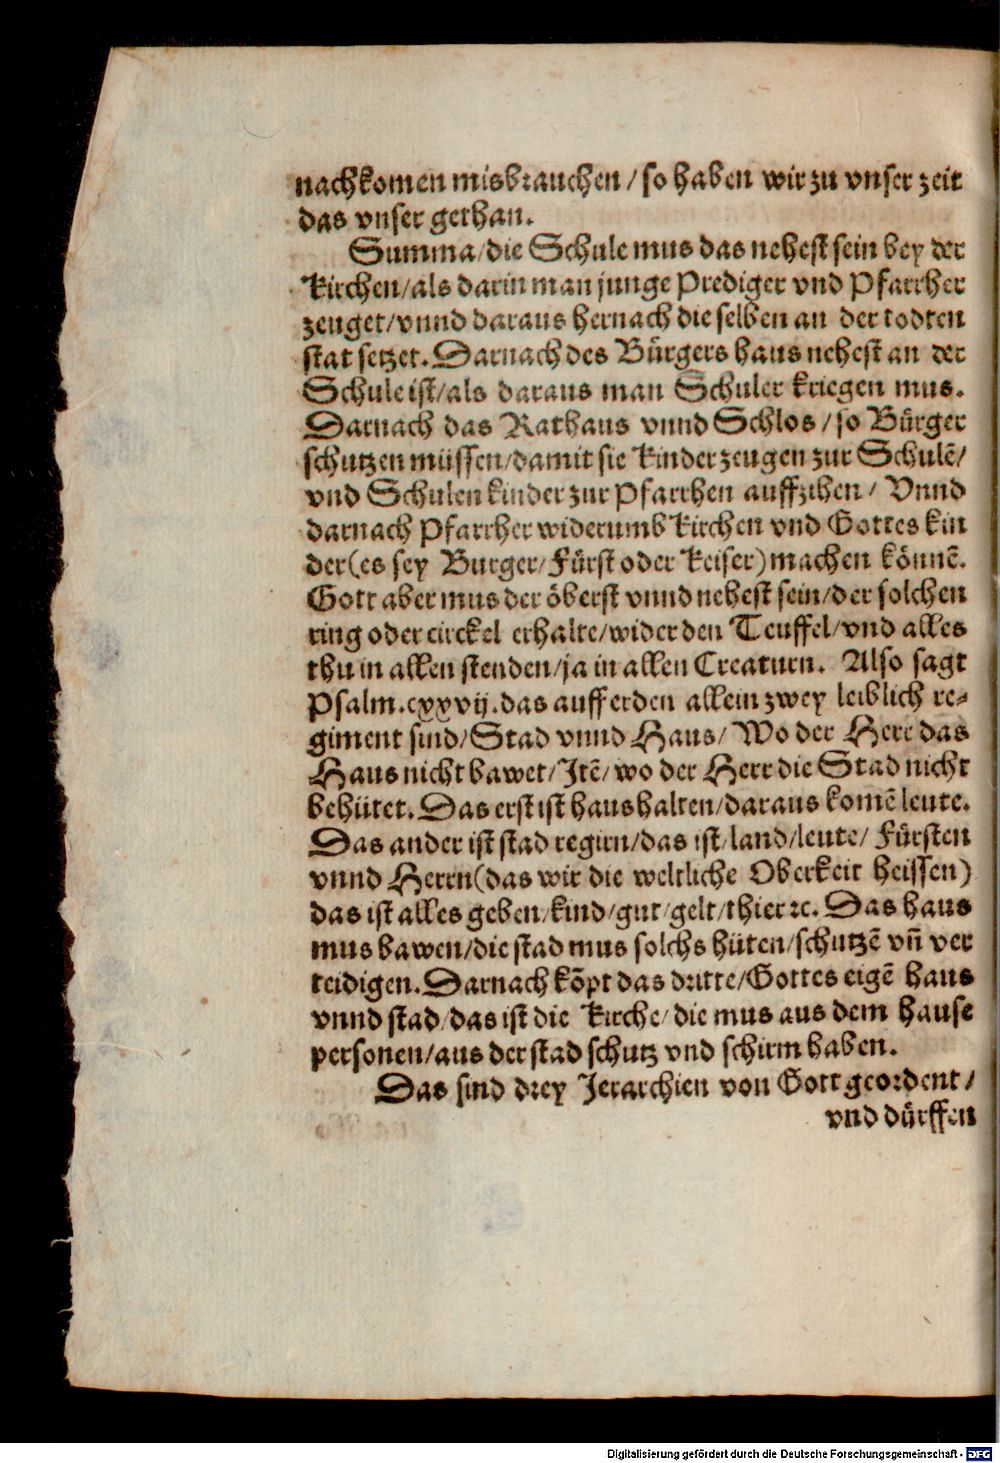 nachkomen misbrauchen / so haben wir zu vnser zeit
das vnser gethan.
Summa / die Schule mus das nehest sein bey der
Kirchen / als darin man junge Prediger vnd Pfarrher
zeuget / vnnd daraus hernach die selben an der todten
stat setzet. Darnach des Bürgers haus nehest an der
Schule ist / als daraus man Schuler kriegen mus.
Darnach das Rathaus vnnd Schlos / so Bürger
schutzen müssen / damit sie Kinder zeugen zur Schulẽ /
vnd Schulen kinder zur Pfarrhen auffzihen / Vnnd
darnach Pfarrher widerumb Kirchen vnd Gottes kin
der (es sey Burger / Fürst oder Keiser) machen könnẽ.
Gott aber mus der öberst vnnd nehest sein / der solchen
ring oder circkel erhalte / wider den Teuffel / vnd alles
thu in allen stenden / ja in allen Creaturn. Also sagt
Psalm. cxxvij. das auff erden allein zwey leiblich re⸗
giment sind / Stad vnnd Haus / Wo der Herr das
Haus nicht bawet / Itẽ / wo der Herr die Stad nicht
behütet. Das erst ist haus halten / daraus komẽ leute.
Das ander ist stad regirn / das ist / land / leute / Fürsten
vnnd Herrn (das wir die weltliche Oberkeit heissen)
das ist alles geben / kind / gut / gelt / thier ꝛc. Das haus
mus bawen / die stad mus solchs hüten / schutzẽ vñ ver
teidigen. Darnach kõpt das dritte / Gottes eigẽ haus
vnnd stad / das ist die Kirche / die mus aus dem hause
personen / aus der stad schutz vnd schirm haben.
Das sind drey Jerarchien von Gott geordent /
vnd dürffen
Digitalisierung gefördert durch die Deutsche Forschungsgemeinschaft - DFG